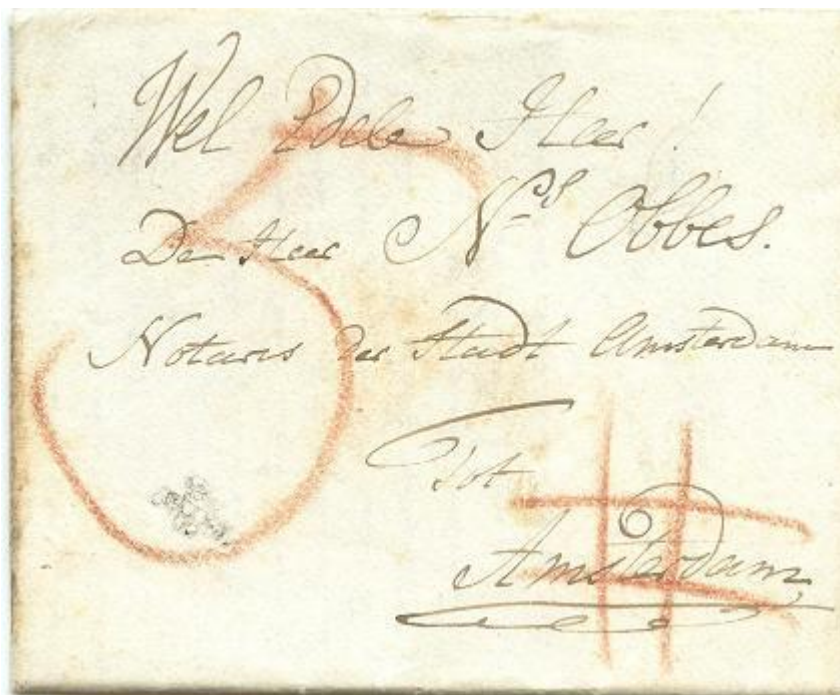 Wel Edele Heer!
Den Heer Ns Obbes.
Notaris der Stadt Amsterdam
Tot
Amsterdam
5
#